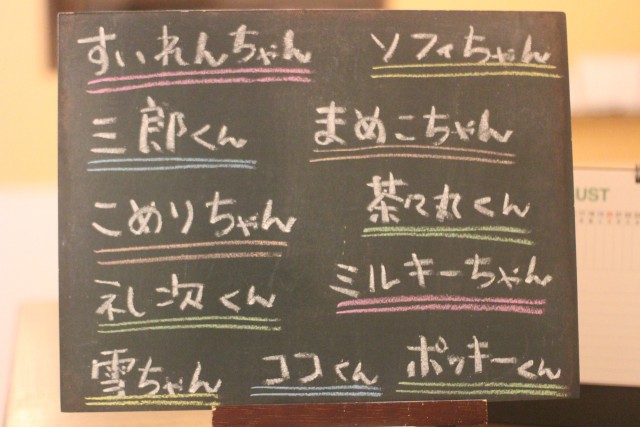 すいれんちゃん ソフィちゃん
三郎くん まめこちゃん
こめりちゃん 茶々丸くん
礼次くん ミルキーちゃん
雪ちゃん ココくん ポッキーくん
UST